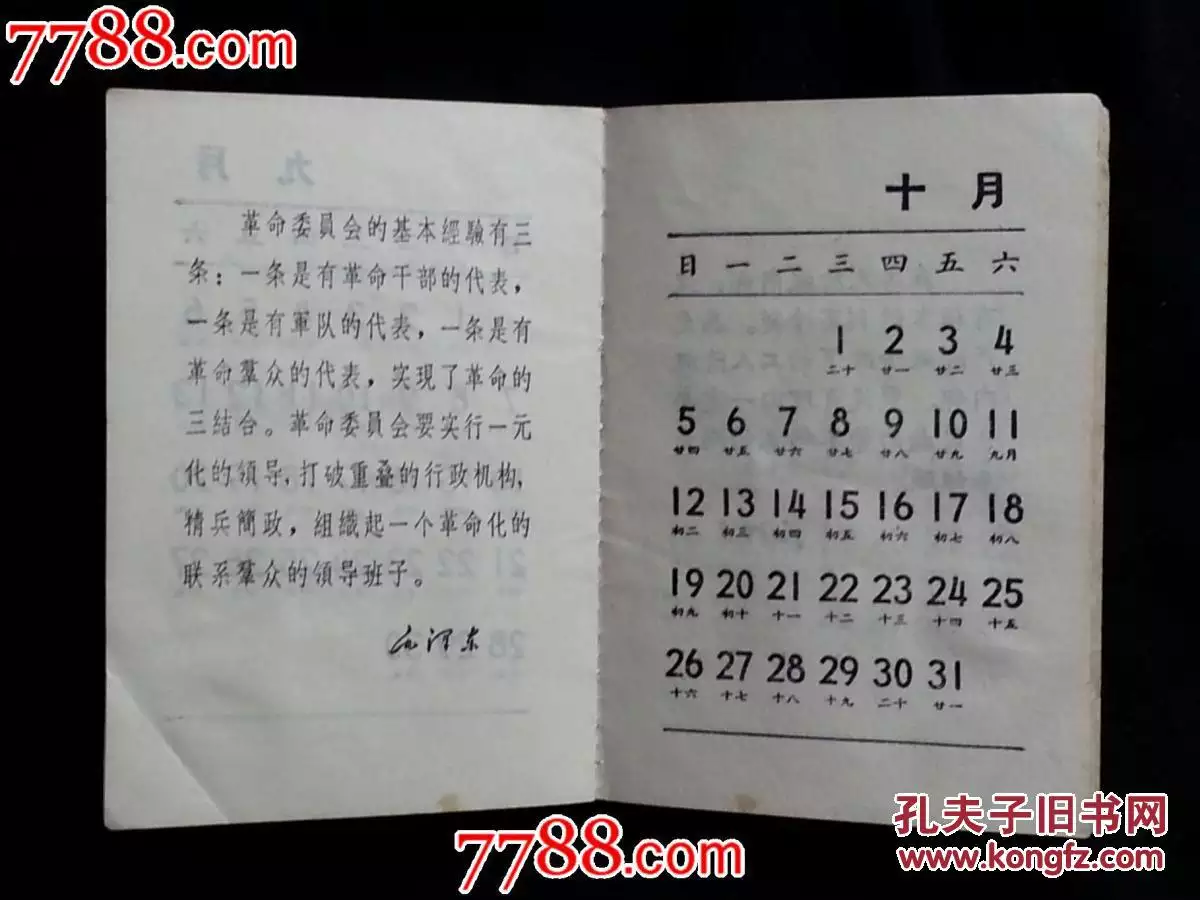 7788.com
革命委員会的基本經驗有三
条：一条是有革命干部的代表，
一条是有軍队的代表，一条是有
革命羣众的代表，实現了革命的
三结合。革命委員会要实行一元
化的領导，打破重叠的行政机构，
精兵簡政，组織起一个革命化的
联系羣众的領导班子。
毛泽东
九月
十月
日 一 二 三 四 五 六
1 2 3 4
二十 廿一 廿二 廿三
5 6 7 8 9 10 11
廿四 廿五 廿六 廿七 廿八 廿九 九月
12 13 14 15 16 17 18
初二 初三 初四 初五 初六 初七 初八
19 20 21 22 23 24 25
初九 初十 十一 十二 十三 十四 十五
26 27 28 29 30 31
十六 十七 十八 十九 二十 廿一
7788.com
孔夫子旧书网
www.kongfz.com